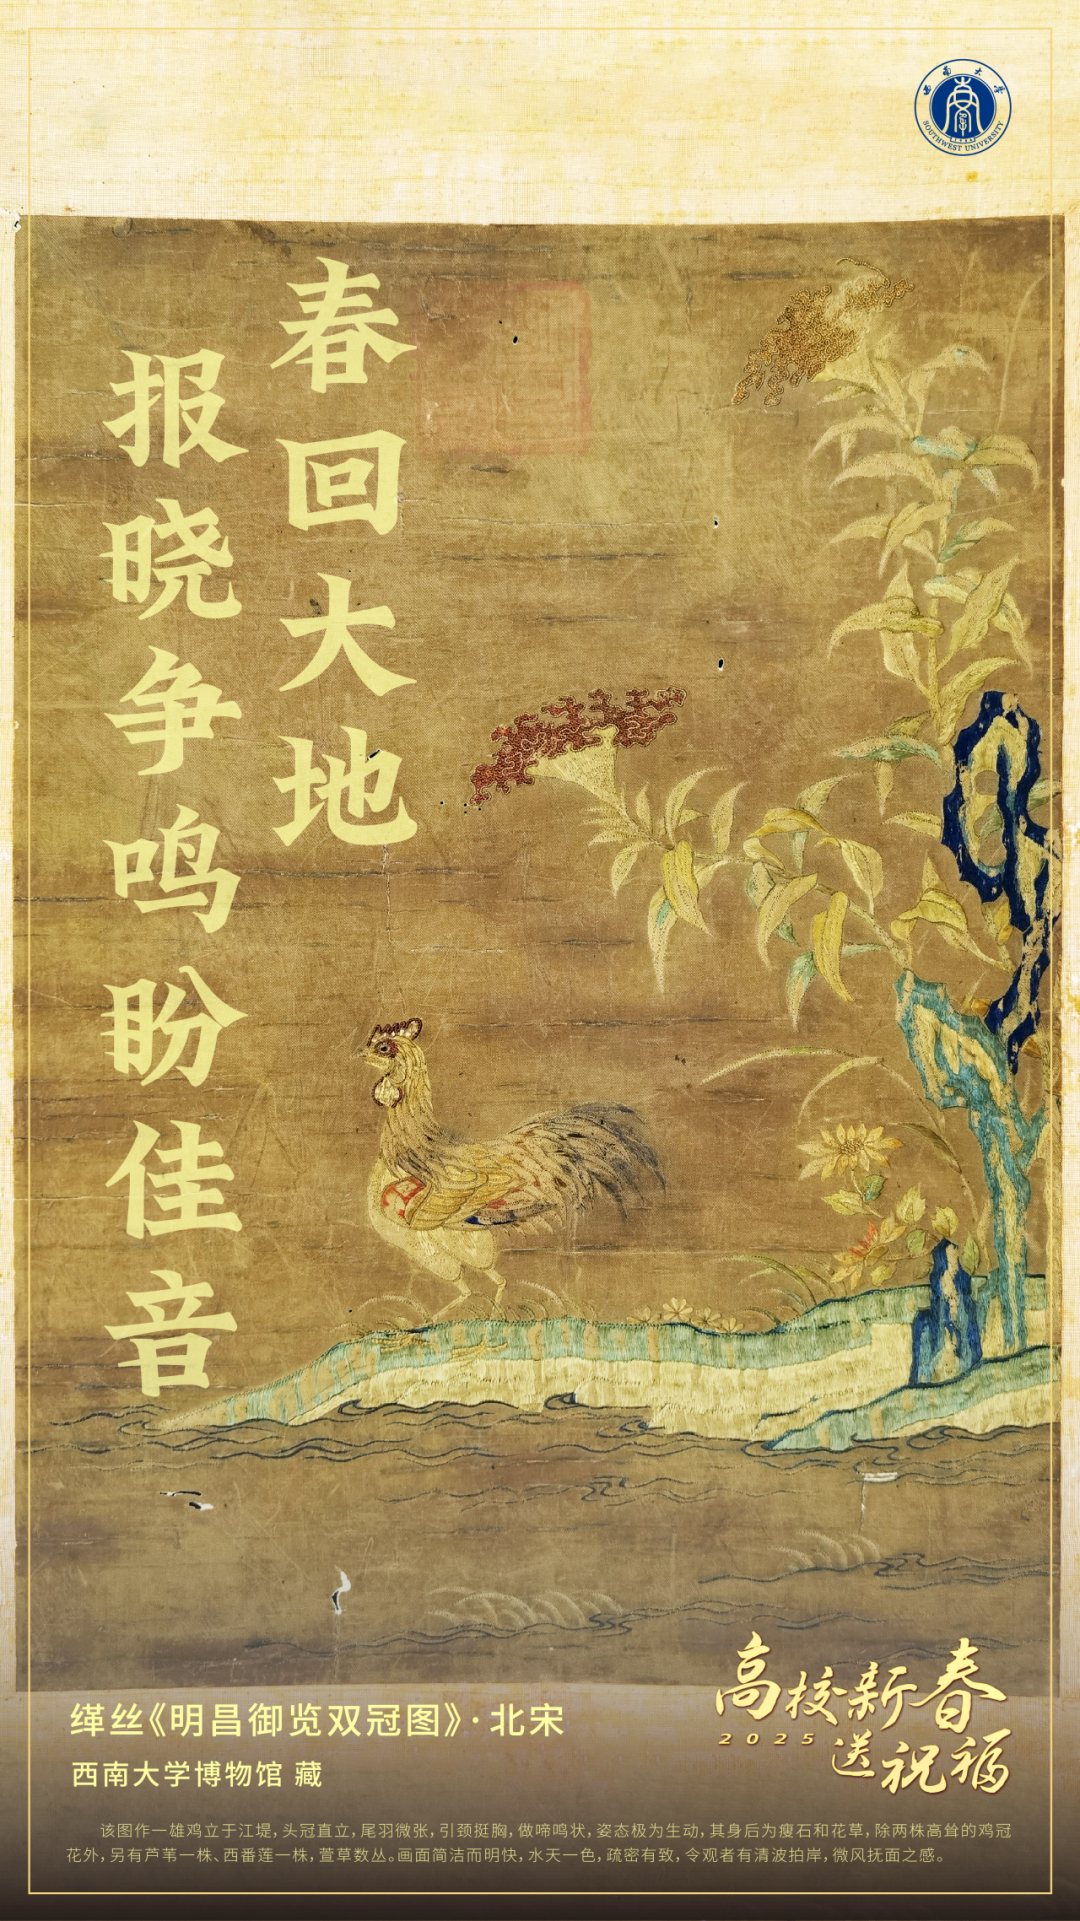 西南大学
SOUTHWEST UNIVERSITY
春回大地
报晓争鸣盼佳音
缂丝《明昌御览双冠图》·北宋
西南大学博物馆 藏
高校新春
2025
送祝福
该图作一雄鸡立于江堤，头冠直立，尾羽微张，引颈挺胸，做啼鸣状，姿态极为生动，其身后为瘦石和花草，除两株高耸的鸡冠
花外，另有芦苇一株、西番莲一株，萱草数丛。画面简洁而明快，水天一色，疏密有致，令观者有清波拍岸，微风抚面之感。